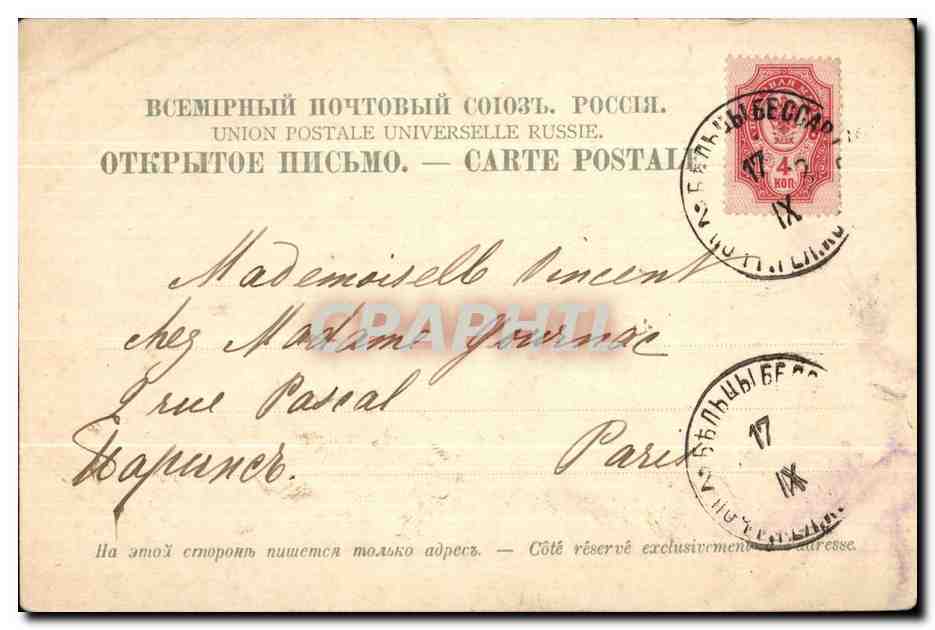 ВСЕМІРНЫЙ ПОЧТОВЫЙ СОЮЗЪ. РОССІЯ.
UNION POSTALE UNIVERSELLE RUSSIE.
ОТКРЫТОЕ ПИСЬМО. — CARTE POSTALE
4
КОП
БѢЛЬЦЫ БЕССАР
17
IX
Mademoiselle Vincent
chez Madame Gournac
rue Pascal
Парижъ. Paris
CPAPHTI
БѢЛЬЦЫ БЕСС
17
IX
На этой сторонѣ пишется только адресъ. — Côté réservé exclusivement à l'adresse.